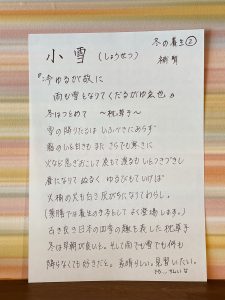 冬の養生②
小雪(しょうせつ)
補腎
『冷ゆるが故に
雨も雪となりてくだるがゆえ也』
冬はつとめて 〜枕草子〜
雪の降りたるは いふべきにあらず
霜のいと白きも またさらでも寒きに
火など急ぎおこして 炭もて渡るも いとつきづきし
昼になりて ぬるく ゆるびもていけば
火桶の火も白き灰がちになりてわろし。
(薬膳では養生の手本として よく登場します。)
古き良き日本の四季の趣を表した枕草子
冬は早朝が良いと。そして雨でも雪でも何も
降らなくても好きだと。素晴らしい。見習いたい。